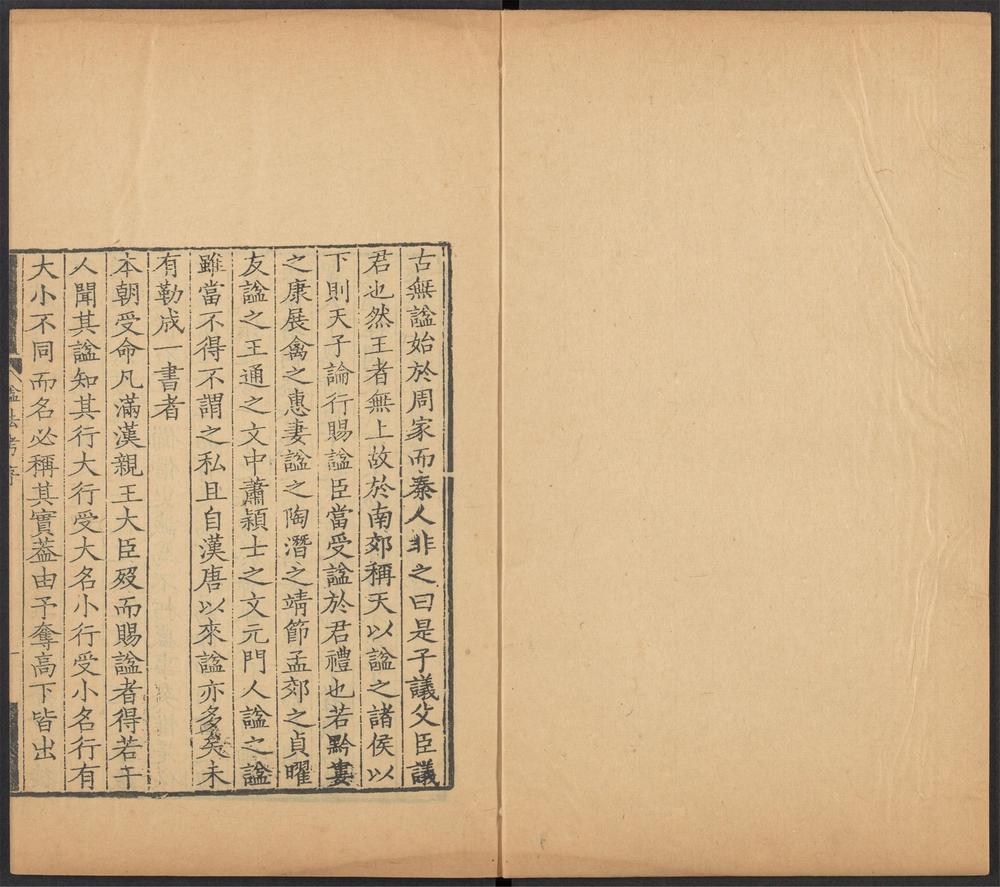 古無諡始於周家而秦人非之曰是子議父臣議
君也然王者無上故於南郊稱天以諡之諸侯以
下則天子論行賜諡臣當受諡於君禮也若黔婁
之康展禽之惠妻諡之陶潛之靖節孟郊之貞曜
友諡之王通之文中蕭穎士之文元門人諡之諡
雖當不得不謂之私且自漢唐以來諡亦多矣未
有勒成一書者
本朝受命凡滿漢親王大臣歿而賜諡者得若干
人聞其諡知其行大行受大名小行受小名行有
大小不同而名必稱其實葢由予奪高下皆出
諡法考序
一